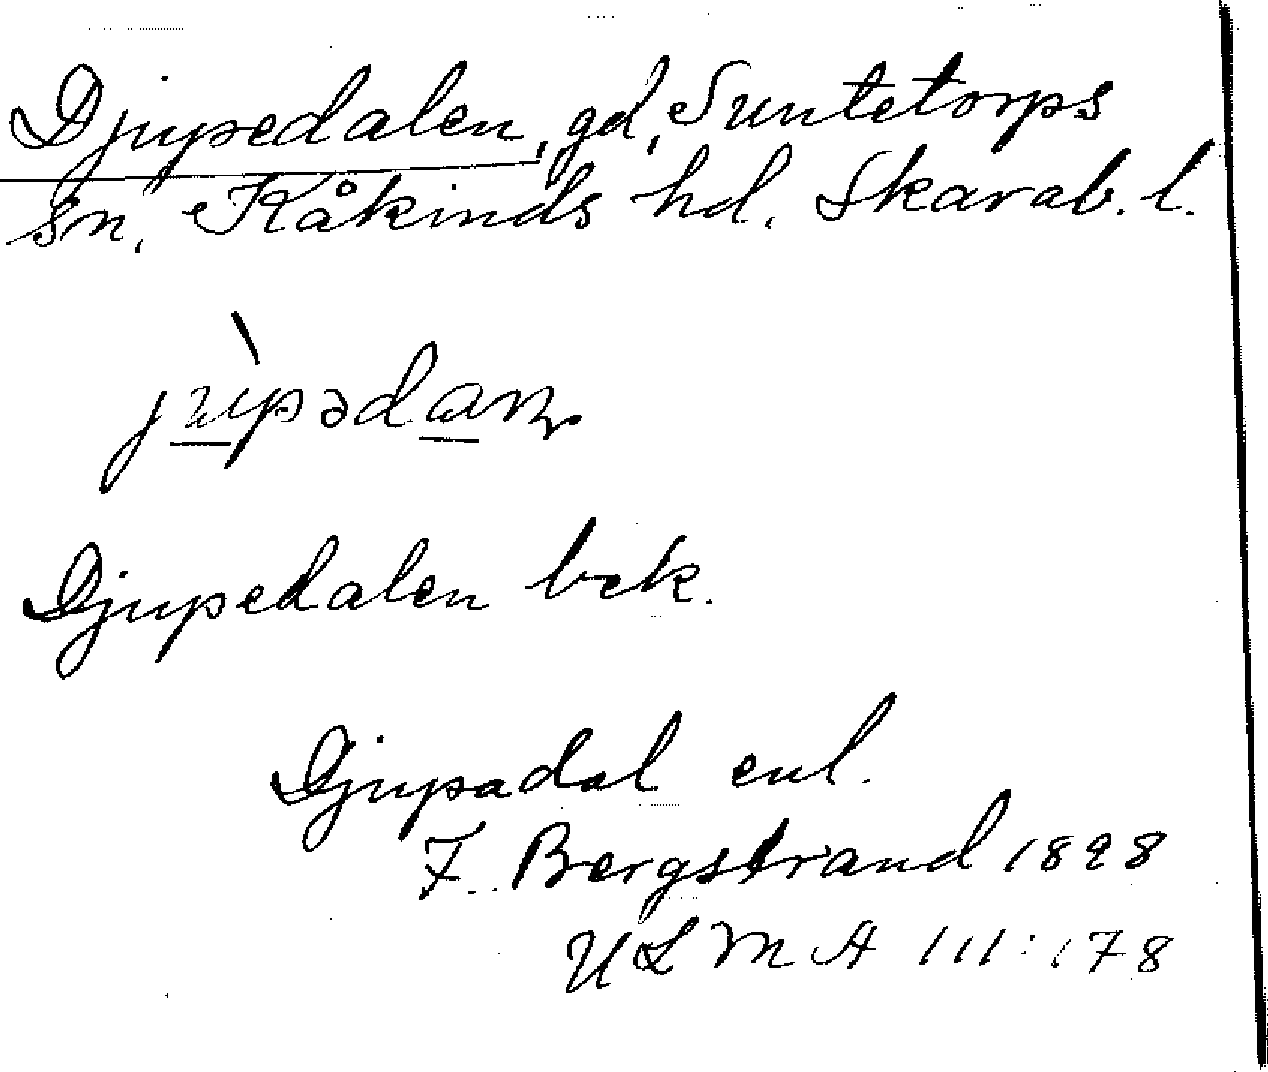 Djupedalen, gd, Suntetorps
sn, Kåkinds hd. Skarab. l.
jùpədan
Djupedalen bek.
Djupadal enl.
F. Bergstrand 1898
ULMA 111:178